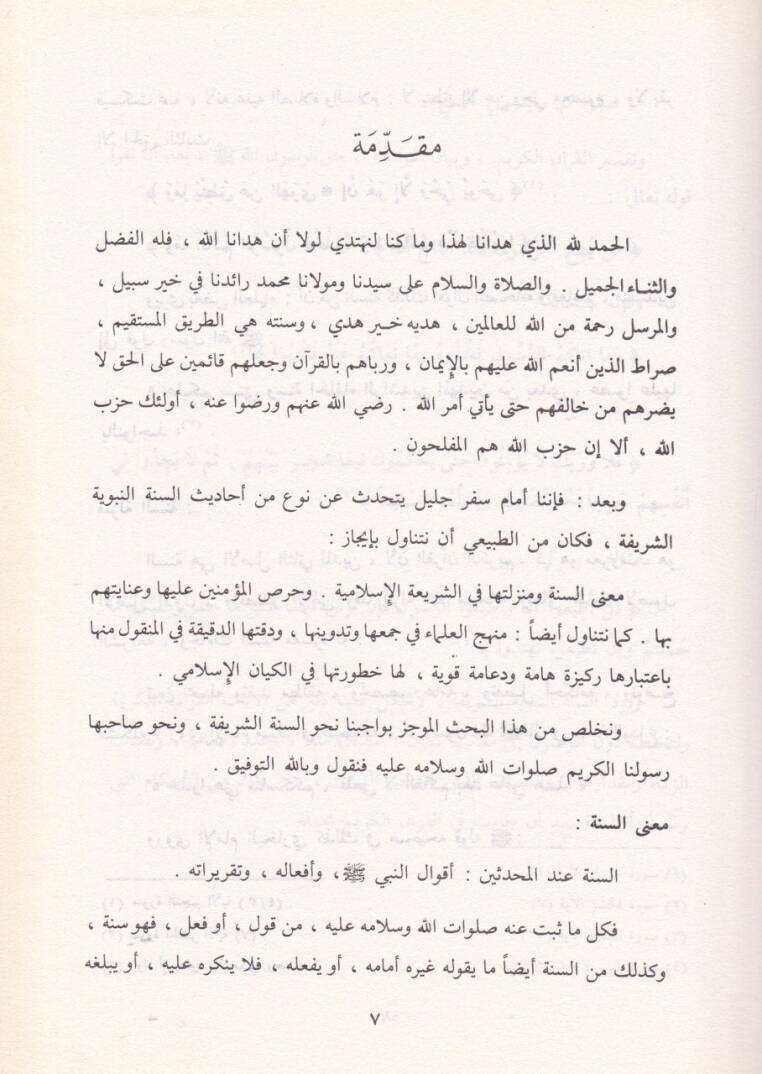 مقدّمَة
الحمد لله الذي هدانا لهذا وما كنا لنهتدي لولا أن هدانا الله ، فله الفضل
والثناء الجميل . والصلاة والسلام على سيدنا ومولانا محمد رائدنا في خير سبيل ،
والمرسل رحمة من الله للعالمين ، هديه خير هدي ، وسنته هي الطريق المستقيم ،
صراط الذين أنعم الله عليهم بالإيمان ، ورباهم بالقرآن وجعلهم قائمين على الحق لا
يضرهم من خالفهم حتى يأتي أمر الله . رضي الله عنهم ورضوا عنه ، أولئك حزب
الله ، ألا إن حزب الله هم المفلحون .
وبعد : فإننا أمام سفر جليل يتحدث عن نوع من أحاديث السنة النبوية
الشريفة ، فكان من الطبيعي أن نتناول بإيجاز :
معنى السنة ومنزلتها في الشريعة الإسلامية . وحرص المؤمنين عليها وعنايتهم
بها . كما نتناول أيضاً : منهج العلماء في جمعها وتدوينها ، ودقتها الدقيقة في المنقول منها
باعتبارها ركيزة هامة ودعامة قوية ، لها خطورتها في الكيان الإسلامي .
ونخلص من هذا البحث الموجز بواجبنا نحو السنة الشريفة ، ونحو صاحبها
رسولنا الكريم صلوات الله وسلامه عليه فنقول وبالله التوفيق .
معنى السنة :
السنة عند المحدثين : أقوال النبي ﷺ ، وأفعاله ، وتقريراته .
فكل ما ثبت عنه صلوات الله وسلامه عليه ، من قول ، أو فعل ، فهو سنة ،
وكذلك من السنة أيضاً ما يقوله غيره أمامه ، أو يفعله ، فلا ينكره عليه ، أو يبلغه
٧